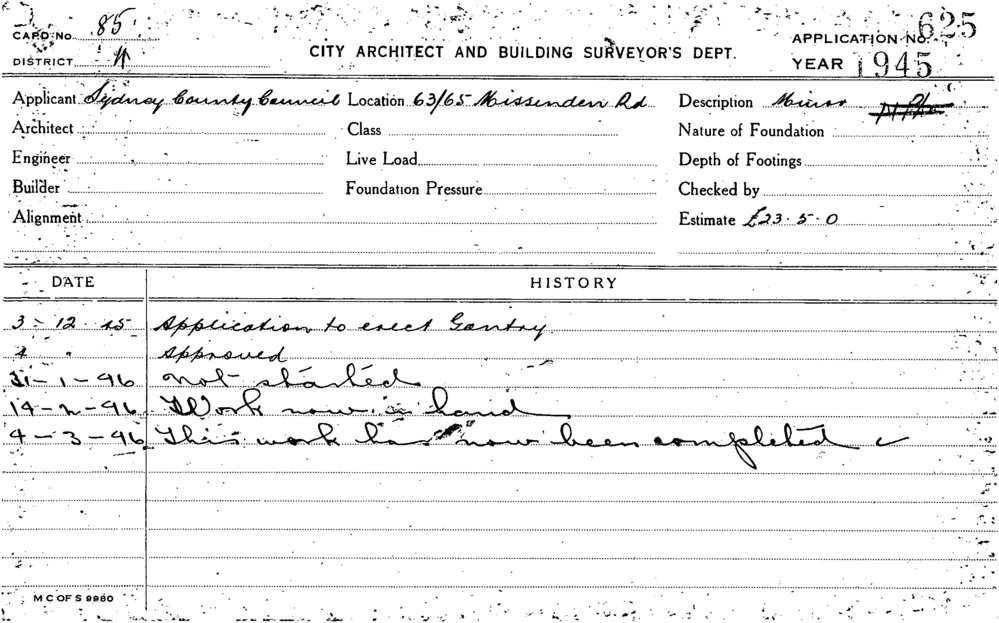 CARD No. 85
APPLICATION No. 625
DISTRICT
CITY ARCHITECT AND BUILDING SURVEYOR'S DEPT.
YEAR 1945
Applicant Sydney County Council Location 63/65 Missenden Rd Description Minor
Architect Class Nature of Foundation
Engineer Live Load Depth of Footings
Builder Foundation Pressure Checked by
Alignment Estimate £23.5.0
DATE HISTORY
3-12-45 Application to erect Gantry.
4 " Approved
31-1-46 Not started
14-2-46 Work now in hand
4-3-46 This work has now been completed
M C OF S 9980